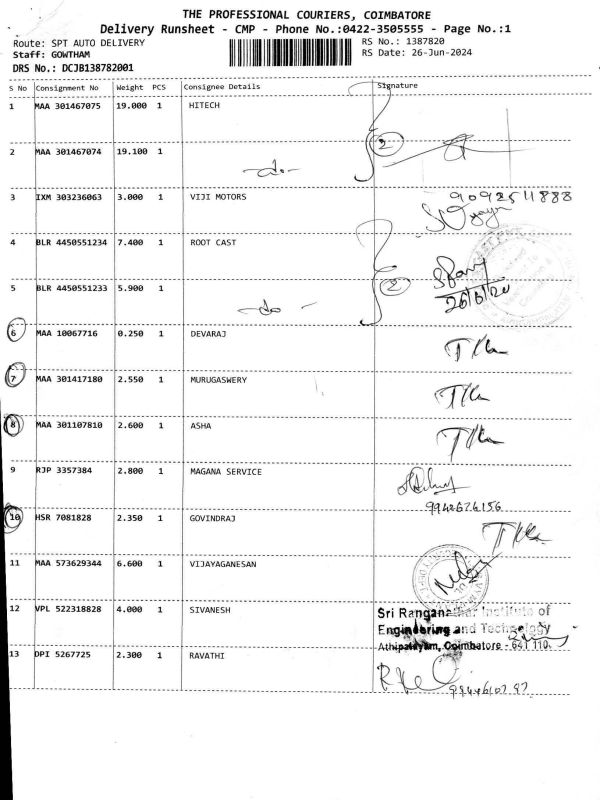 THE PROFESSIONAL COURIERS, COIMBATORE
Delivery Runsheet - CMP - Phone No.:0422-3505555 - Page No.:1
Route: SPT AUTO DELIVERY RS No.: 1387820
Staff: GOWTHAM RS Date: 26-Jun-2024
DRS No.: DCJB138782001
S No Consignment No Weight PCS Consignee Details Signature
1 MAA 301467075 19.000 1 HITECH
2
2 MAA 301467074 19.100 1
-do-
3 IXM 303236063 3.000 1 VIJI MOTORS 9092511888
4 BLR 4450551234 7.400 1 ROOT CAST
2
5 BLR 4450551233 5.900 1 26/6/20
-do-
6 MAA 10067716 0.250 1 DEVARAJ
7 MAA 301417180 2.550 1 MURUGASWERY
8 MAA 301107810 2.600 1 ASHA
9 RJP 3357384 2.800 1 MAGANA SERVICE
9942626156
10 HSR 7081828 2.350 1 GOVINDRAJ
11 MAA 573629344 6.600 1 VIJAYAGANESAN
12 VPL 522318828 4.000 1 SIVANESH Sri Ranganathar Institute of
Engineering and Technology
Athipalayam, Coimbatore - 641 110.
13 DPI 5267725 2.300 1 RAVATHI